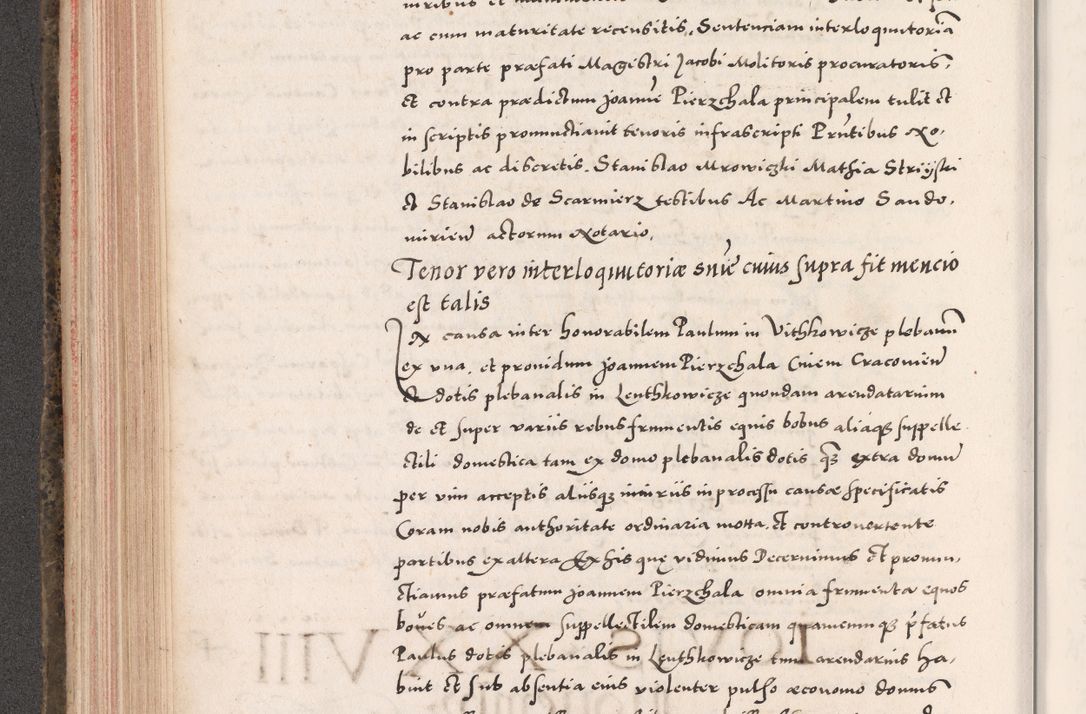 ac cum maturitate recensitis, Sentenciam interloquutoriã
pro parte præfati Magistri Jacobi Molitoris procuratoris,
et contra prædictum Joannẽ Pierzchala principalem tulit et
in scriptis pronunctiavit tenoris infrascripti Prñtibus No,
bilibus ac discretis. Stanislao Mrowiczki Mathia Striyski
et Stanislao de Scarmierz testibus Ac Martino Sando,
mirieñ actorum Notario.
Tenor vero interloquutoriæ sniẽ cuius supra fit mencio
est talis
In causa inter honorabilem Paulum in Vithkowicze plebanũ
ex una, et providum Joannem Pierzchala Civem Cracovieñ
et dotis plebanalis in Leuthkowicze quondam arendatarium
de et super variis rebus frumentis equis bobus aliaqꝫ suppelle
ctili domestica tam ex domo plebanalis dotis qꝫ extra domũ
per vim acceptis aliisqꝫ iniuriis in processu causæ specificatis
Coram nobis authoritate ordinaria motta. et controvertente
partibus ex altera Ex his quę vidimus Decernimus et pronun,
ctiamus præfatum Joannem Pierzchala omnia frumenta equos
boves ac omnem suppellectilem domesticam quamcumqꝫ p̃fatus
Paulus dotis plebanalis in Leuthkowicze tum arendarius ha,
buit et sub absentia eius violenter pulso æconomo domus